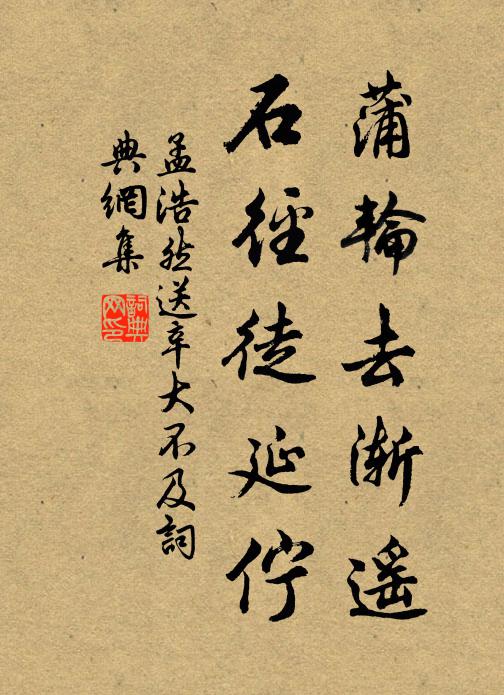 蒲輪去漸遥
石徑徒延佇
孟浩然送辛大不及詞
典網集
詞典网印